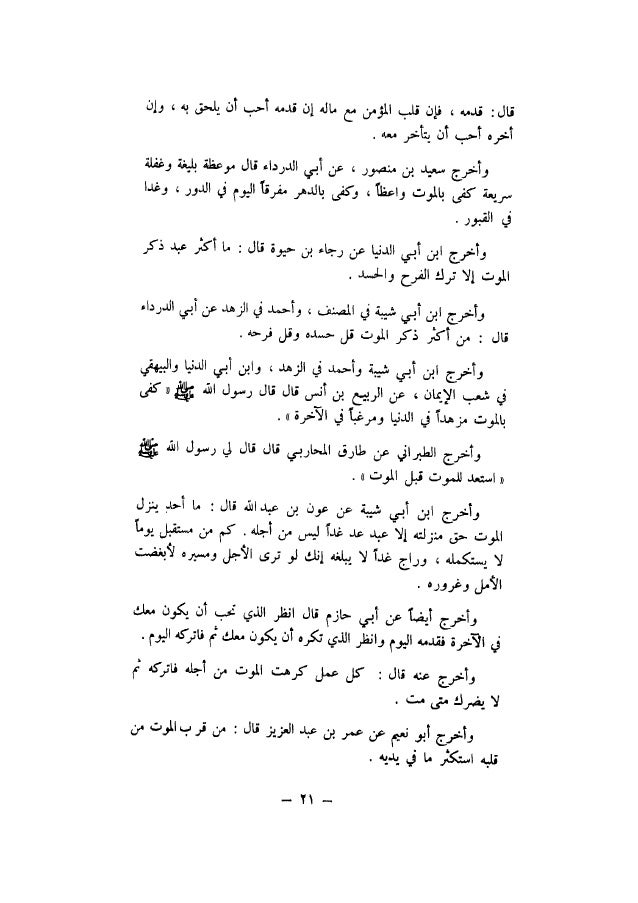 قال : قدمه ، فإن قلب المؤمن مع ماله إن قدمه أحب أن يلحق به ، وإن
أخره أحب أن يتأخر معه .
وأخرج سعيد بن منصور ، عن أبي الدرداء قال موعظة بليغة وغفلة
سريعة كفى بالموت واعظاً ، وكفى بالدهر مفرقاً اليوم في الدور ، وغدا
في القبور .
وأخرج ابن أبي الدنيا عن رجاء بن حيوة قال : ما أكثر عبد ذكر
الموت إلا ترك الفرح والحسد .
وأخرج ابن أبي شيبة في المصنف ، وأحمد في الزهد عن أبي الدرداء
قال : من أكثر ذكر الموت قل حسده وقل فرحه .
وأخرج ابن أبي شيبة وأحمد في الزهد ، وابن أبي الدنيا والبيهقي
في شعب الإيمان ، عن الربيع بن أنس قال قال رسول الله ﷺ « كفى
بالموت مزهداً في الدنيا ومرغباً في الآخرة » .
وأخرج الطبراني عن طارق المحاربي قال قال لي رسول الله ﷺ
« استعد للموت قبل الموت » .
وأخرج ابن أبي شيبة عن عون بن عبدالله قال : ما أحد ينزل
الموت حق منزلته إلا عبد عد غداً ليس من أجله . كم من مستقبل يوماً
لا يستكمله ، وراج غداً لا يبلغه إنك لو ترى الأجل ومسيره لأبغضت
الأمل وغروره .
وأخرج أيضاً عن أبي حازم قال انظر الذي تحب أن يكون معك
في الآخرة فقدمه اليوم وانظر الذي تكره أن يكون معك ثم فاتركه اليوم .
وأخرج عنه قال : كل عمل كرهت الموت من أجله فاتركه ثم
لا يضرك متى مت .
وأخرج أبو نعيم عن عمر بن عبد العزيز قال : من قرب الموت من
قلبه استكثر ما في يديه .
— ٢١ —